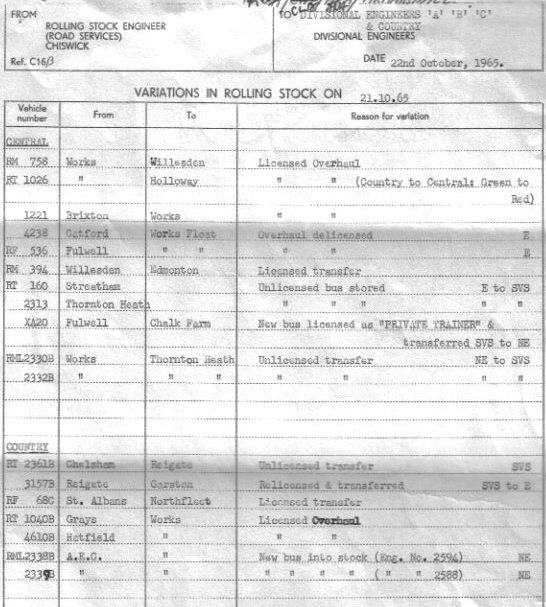 FROM
ROLLING STOCK ENGINEER
(ROAD SERVICES)
CHISWICK
Ref. C16/3
TO DIVISIONAL ENGINEERS 'A' 'B' 'C'
& COUNTRY
DIVISIONAL ENGINEERS
DATE 22nd October, 1965.
VARIATIONS IN ROLLING STOCK ON 21.10.65
Vehicle number From To Reason for variation
CENTRAL
RM 758 Works Willesden Licensed Overhaul
RT 1026 " Holloway " " (Country to Central: Green to
Red)
1221 Brixton Works " "
4238 Catford Works Float Overhaul delicensed E
RF 536 Fulwell " " " " E
RM 394 Willesden Edmonton Licensed transfer
RT 160 Streatham Unlicensed bus stored E to SVS
2313 Thornton Heath " " " " "
XA20 Fulwell Chalk Farm New bus licensed as "PRIVATE TRAINER" &
transferred SVS to NE
RML2330B Works Thornton Heath Unlicensed transfer NE to SVS
2332B " " " " " " "
COUNTRY
RT 2361B Chelsham Reigate Unlicensed transfer SVS
3157B Reigate Garston Relicensed & transferred SVS to E
RF 68C St. Albans Northfleet Licensed transfer
RT 1040B Grays Works Licensed Overhaul
4610B Hatfield " " "
RML2338B A.E.C. " New bus into stock (Eng. No. 2594) NE
2339B " " " " " " ( " " 2588) NE